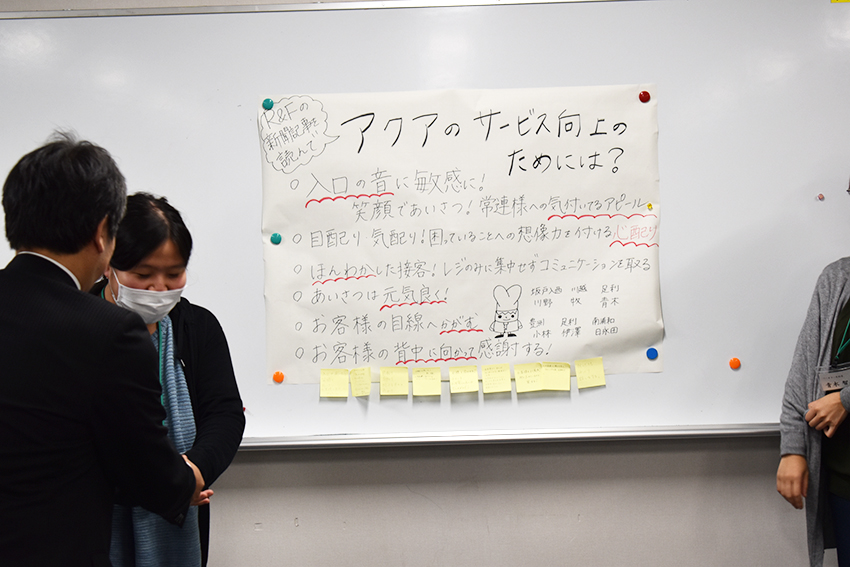 R&Fの
新聞記事を
読んで
アクアのサービス向上の
ためには?
○入口の音に敏感に!
笑顔であいさつ!常連様への気付いてるアピール
○目配り気配り!困っていることへの想像力を付ける心配り
○ほんわかした接客!レジのみに集中せずコミュニケーションを取る
○あいさつは元気良く!
○お客様の目線へかがむ
○お客様の背中に向かって感謝する!
坂戸入西 川越 足利
川野 牧 青木
豊川 足利 南浦和
小林 伊澤 日永田